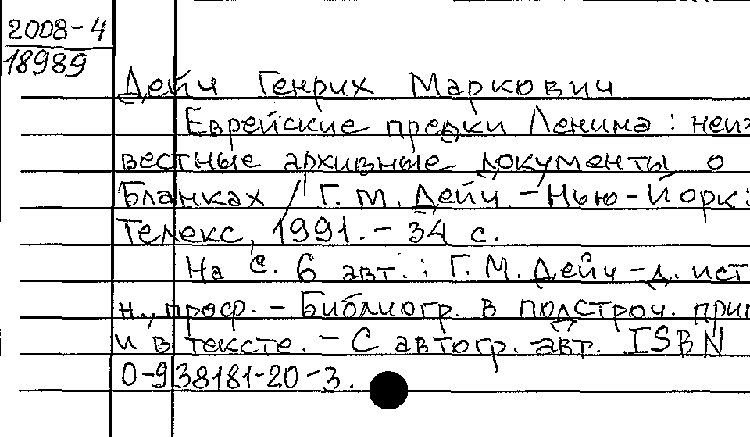 2008-4
18989
Дейч Генрих Маркович
Еврейские предки Ленина : неиз
вестные архивные документы о
Бланках / Г. М. Дейч. - Нью-Йорк:
Телекс, 1991. - 34 с.
На с. 6 авт.: Г. М. Дейч - д. ист
н., проф. - Библиогр. в подстроч. прим
и в тексте. - С автогр. авт. ISBN
0-938181-20-3.